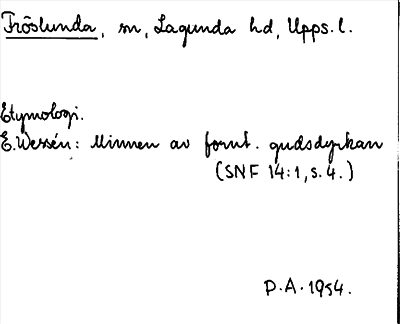 Fröslunda, sn, Lagunda hd, Upps. l.
Etymologi.
E. Wessén: Minnen av fornt. gudsdyrkan
(SNF 14:1, s. 4.)
P.A. 1954.